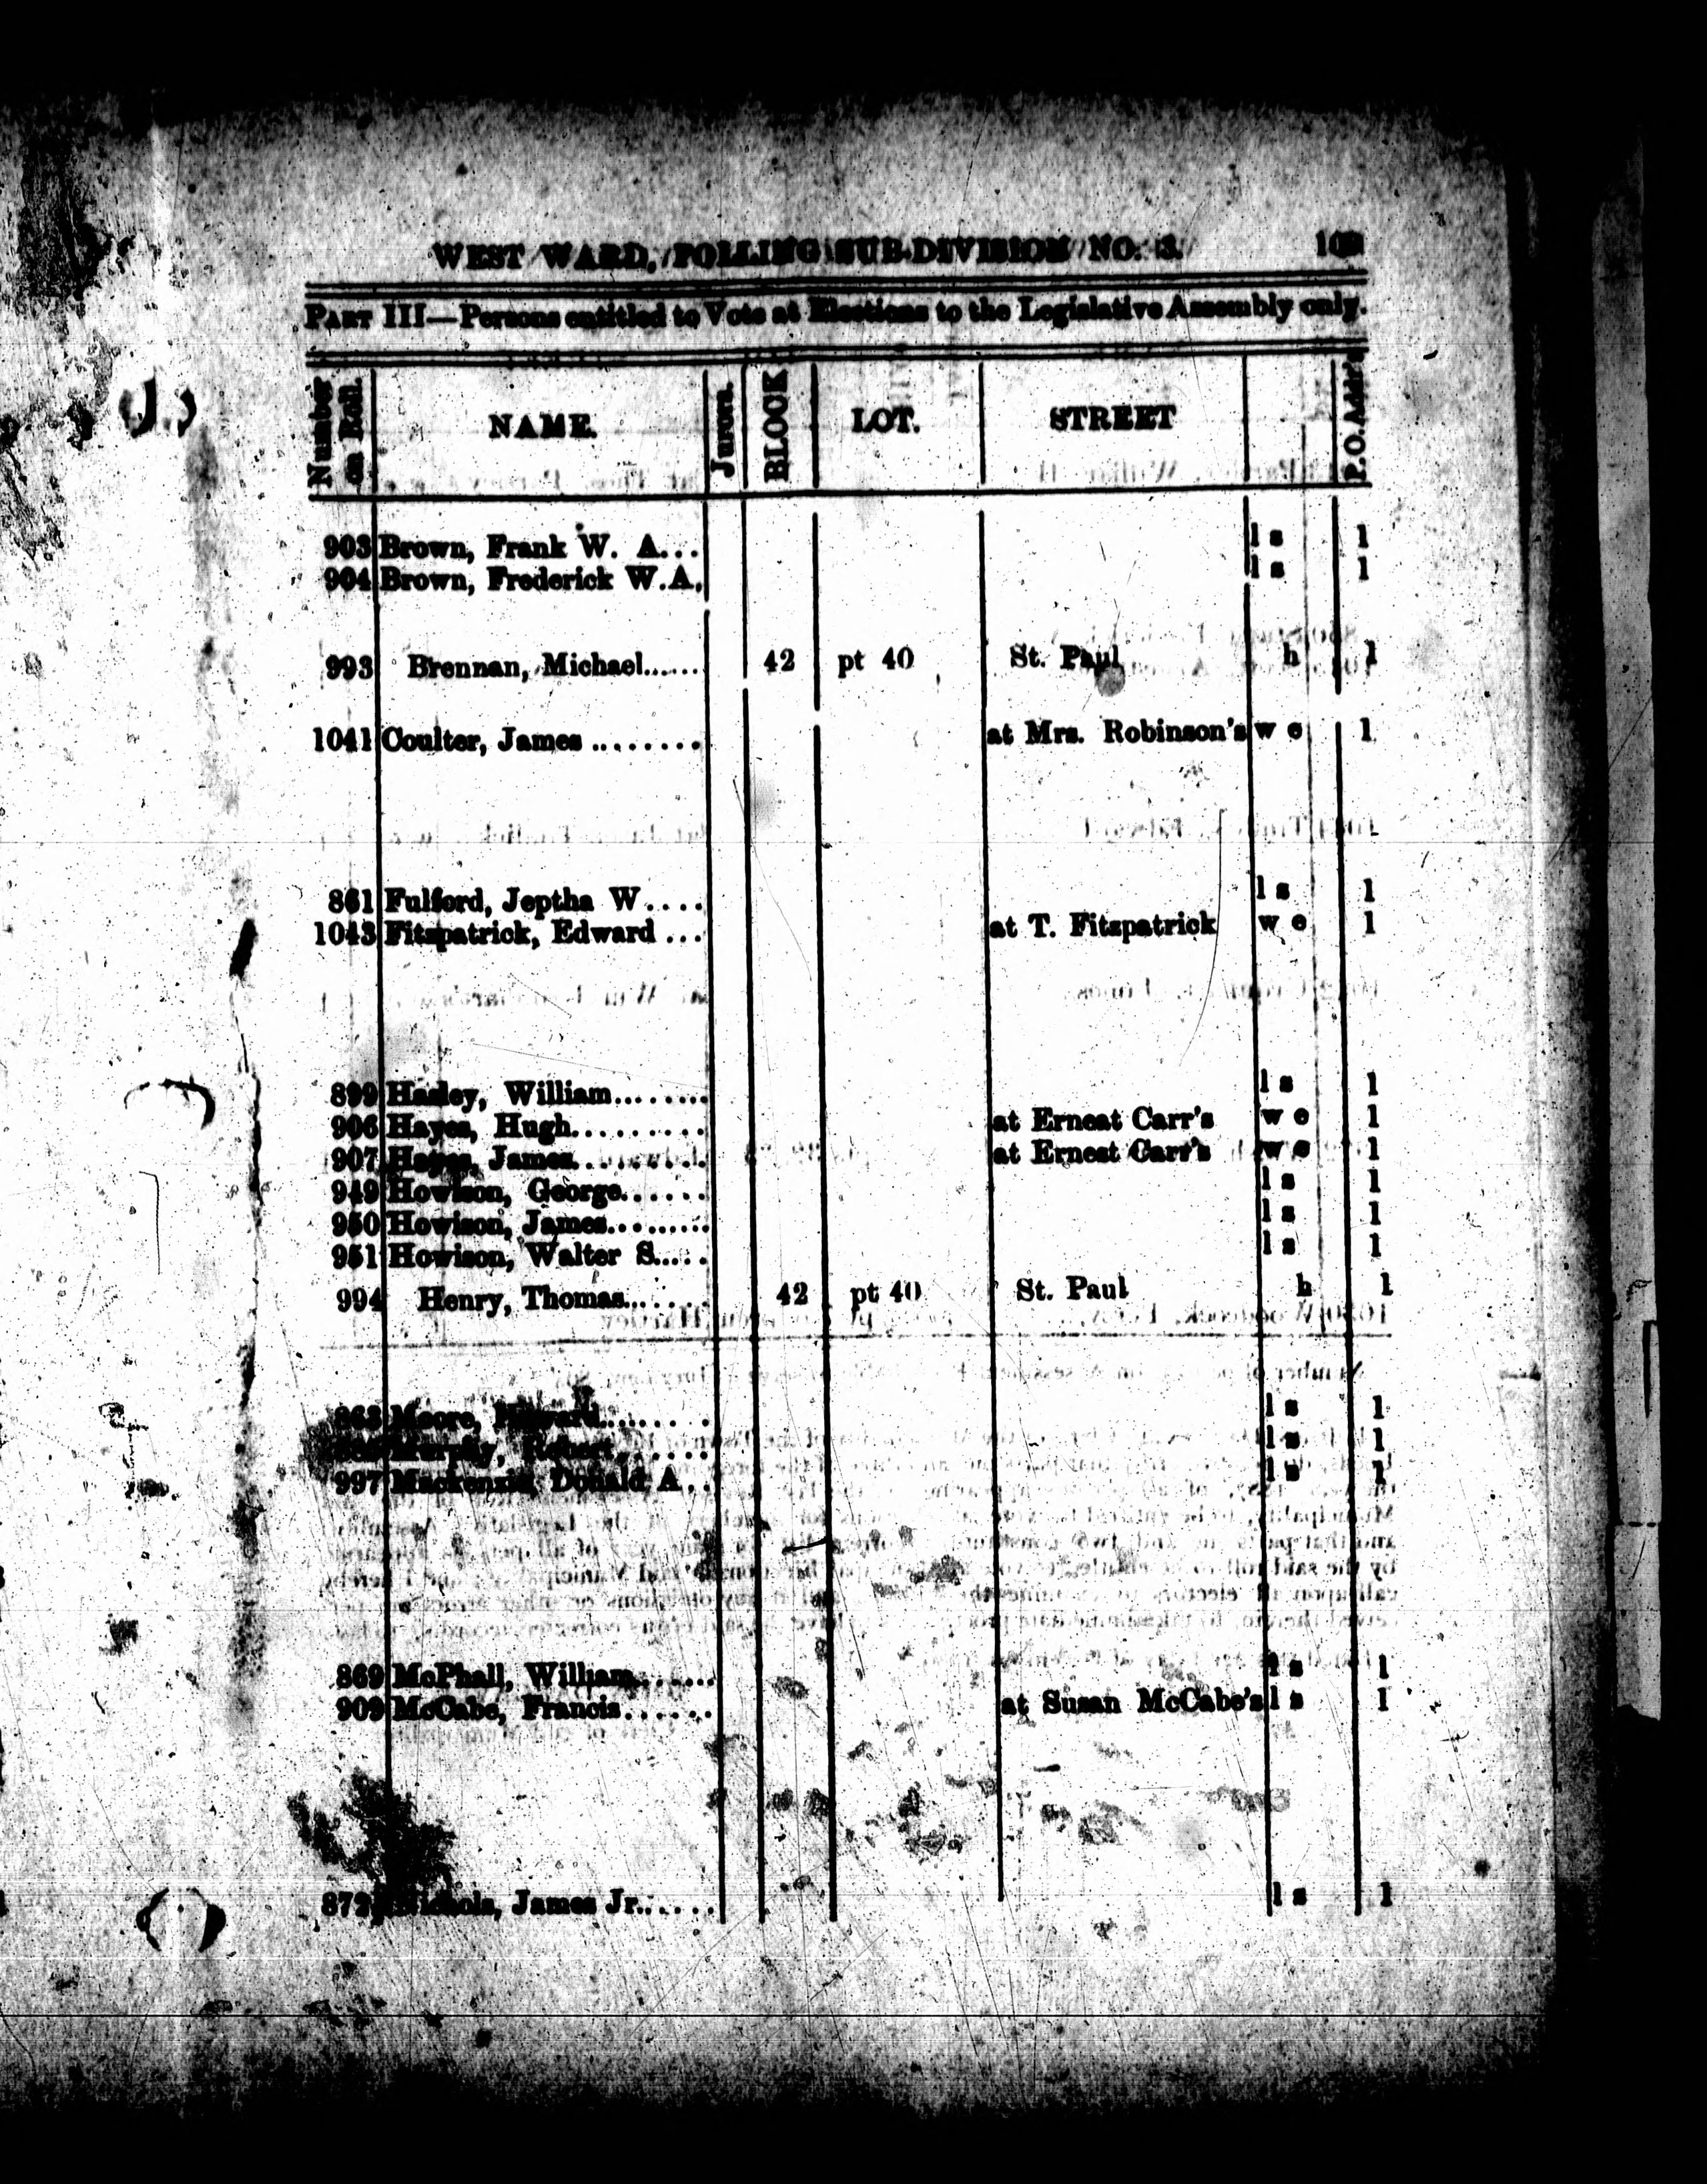 WEST WARD, POLLING SUB-DIVISION NO. 3.
PART III—Persons entitled to Vote at Elections to the Legislative Assembly only.
Number on Roll. NAME. Jurors. BLOCK LOT. STREET P.O. Addr's
903 Brown, Frank W. A... l s 1
904 Brown, Frederick W.A. l s 1
993 Brennan, Michael...... 42 pt 40 St. Paul h 1
1041 Coulter, James ........ at Mrs. Robinson's w e 1
861 Fulford, Jeptha W.... l s 1
1043 Fitzpatrick, Edward ... at T. Fitzpatrick w e 1
899 Hadley, William........ l s 1
906 Hayes, Hugh......... at Ernest Carr's w e 1
907 Hayes, James......... at Ernest Carr's w e 1
949 Howison, George...... l s 1
950 Howison, James......... l s 1
951 Howison, Walter S..... l s 1
994 Henry, Thomas....... 42 pt 40 St. Paul h 1
863 Moore, ....... l s 1
Murphy, Robert....... l s 1
997 Mackenzie, Donald A.. l s 1
869 McPhall, William....... l s 1
909 McCabe, Francis...... at Susan McCabe's l s 1
872 Nichols, James Jr...... l s 1